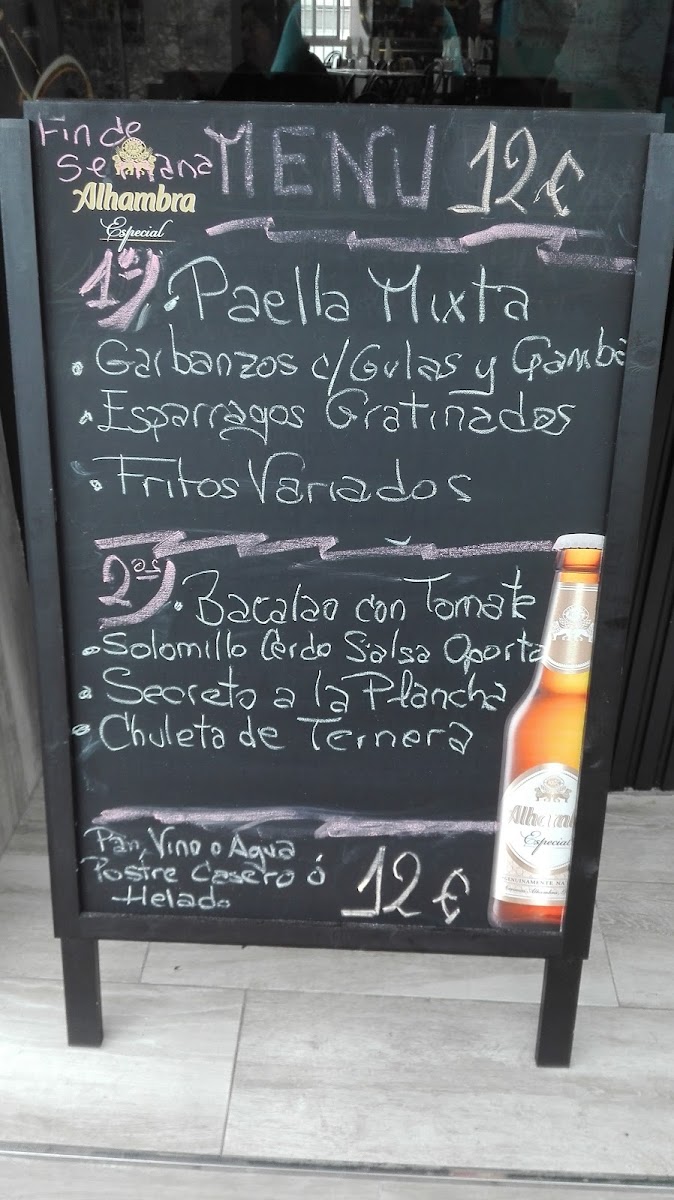 Fin de
Semana
MENU 12€
Alhambra
Especial
1os
· Paella Mixta
· Garbanzos c/Gulas y Gamba
· Esparragos Gratinados
· Fritos Variados
2os
· Bacalao con Tomate
· Solomillo Cerdo Salsa Oporto
· Secreto a la Plancha
· Chuleta de Ternera
Pan, Vino o Agua
Postre Casero ó
Helado
12€
Alham
Especial